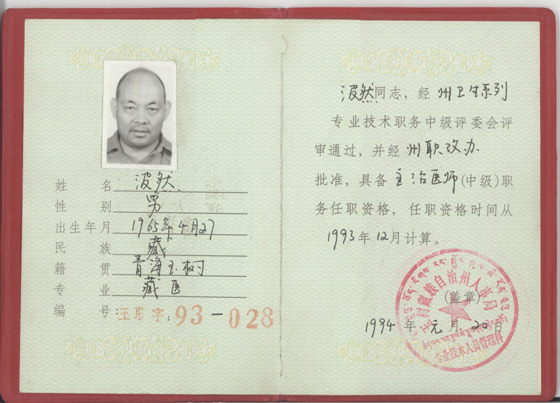 姓 名 波然
性 别 男
出生年月 1965年4月27
民 族 藏
籍 贯 青海玉树
专 业 藏医
编 号:玉职字:93-028
波然同志,经 州卫生系列
专业技术职务中级评委会评
审通过,并经 州职改办
批准,具备 主治医师(中级)职
务任职资格,任职资格时间从
1993年12月计算。
玉树藏族自治州人事局
(盖章)
1994年元月20日
专业技术人员管理科